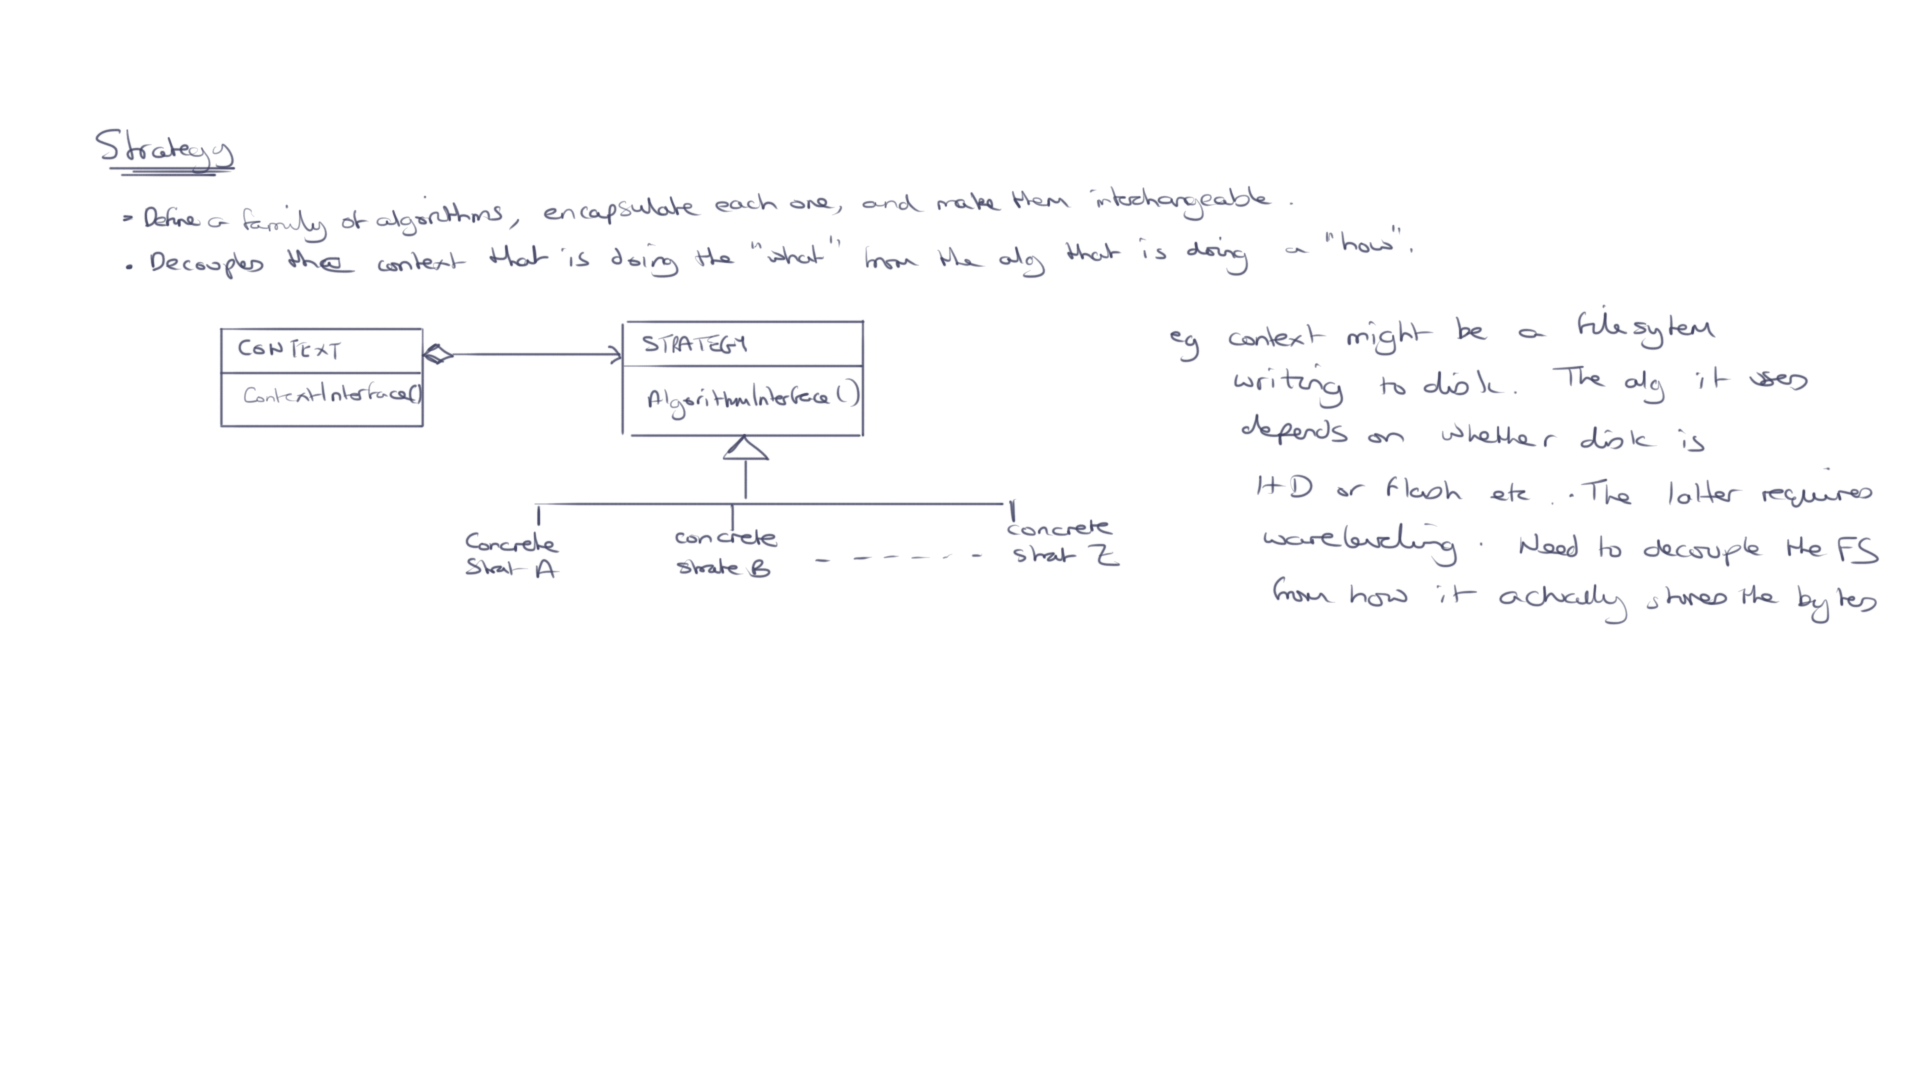 Strategy
Define a family of algorithms, encapsulate each one, and make them interchangeable.
• Decouples the context that is doing the "what" from the alg that is doing a "how".
CONTEXT
ContextInterface()
STRATEGY
AlgorithmInterface()
Concrete
Strat A
concrete
strate B
concrete
strat Z
eg context might be a filesytem
writing to disk. The alg it uses
depends on whether disk is
HD or flash etc.. The latter requires
wareleveling. Need to decouple the FS
from how it actually stores the bytes